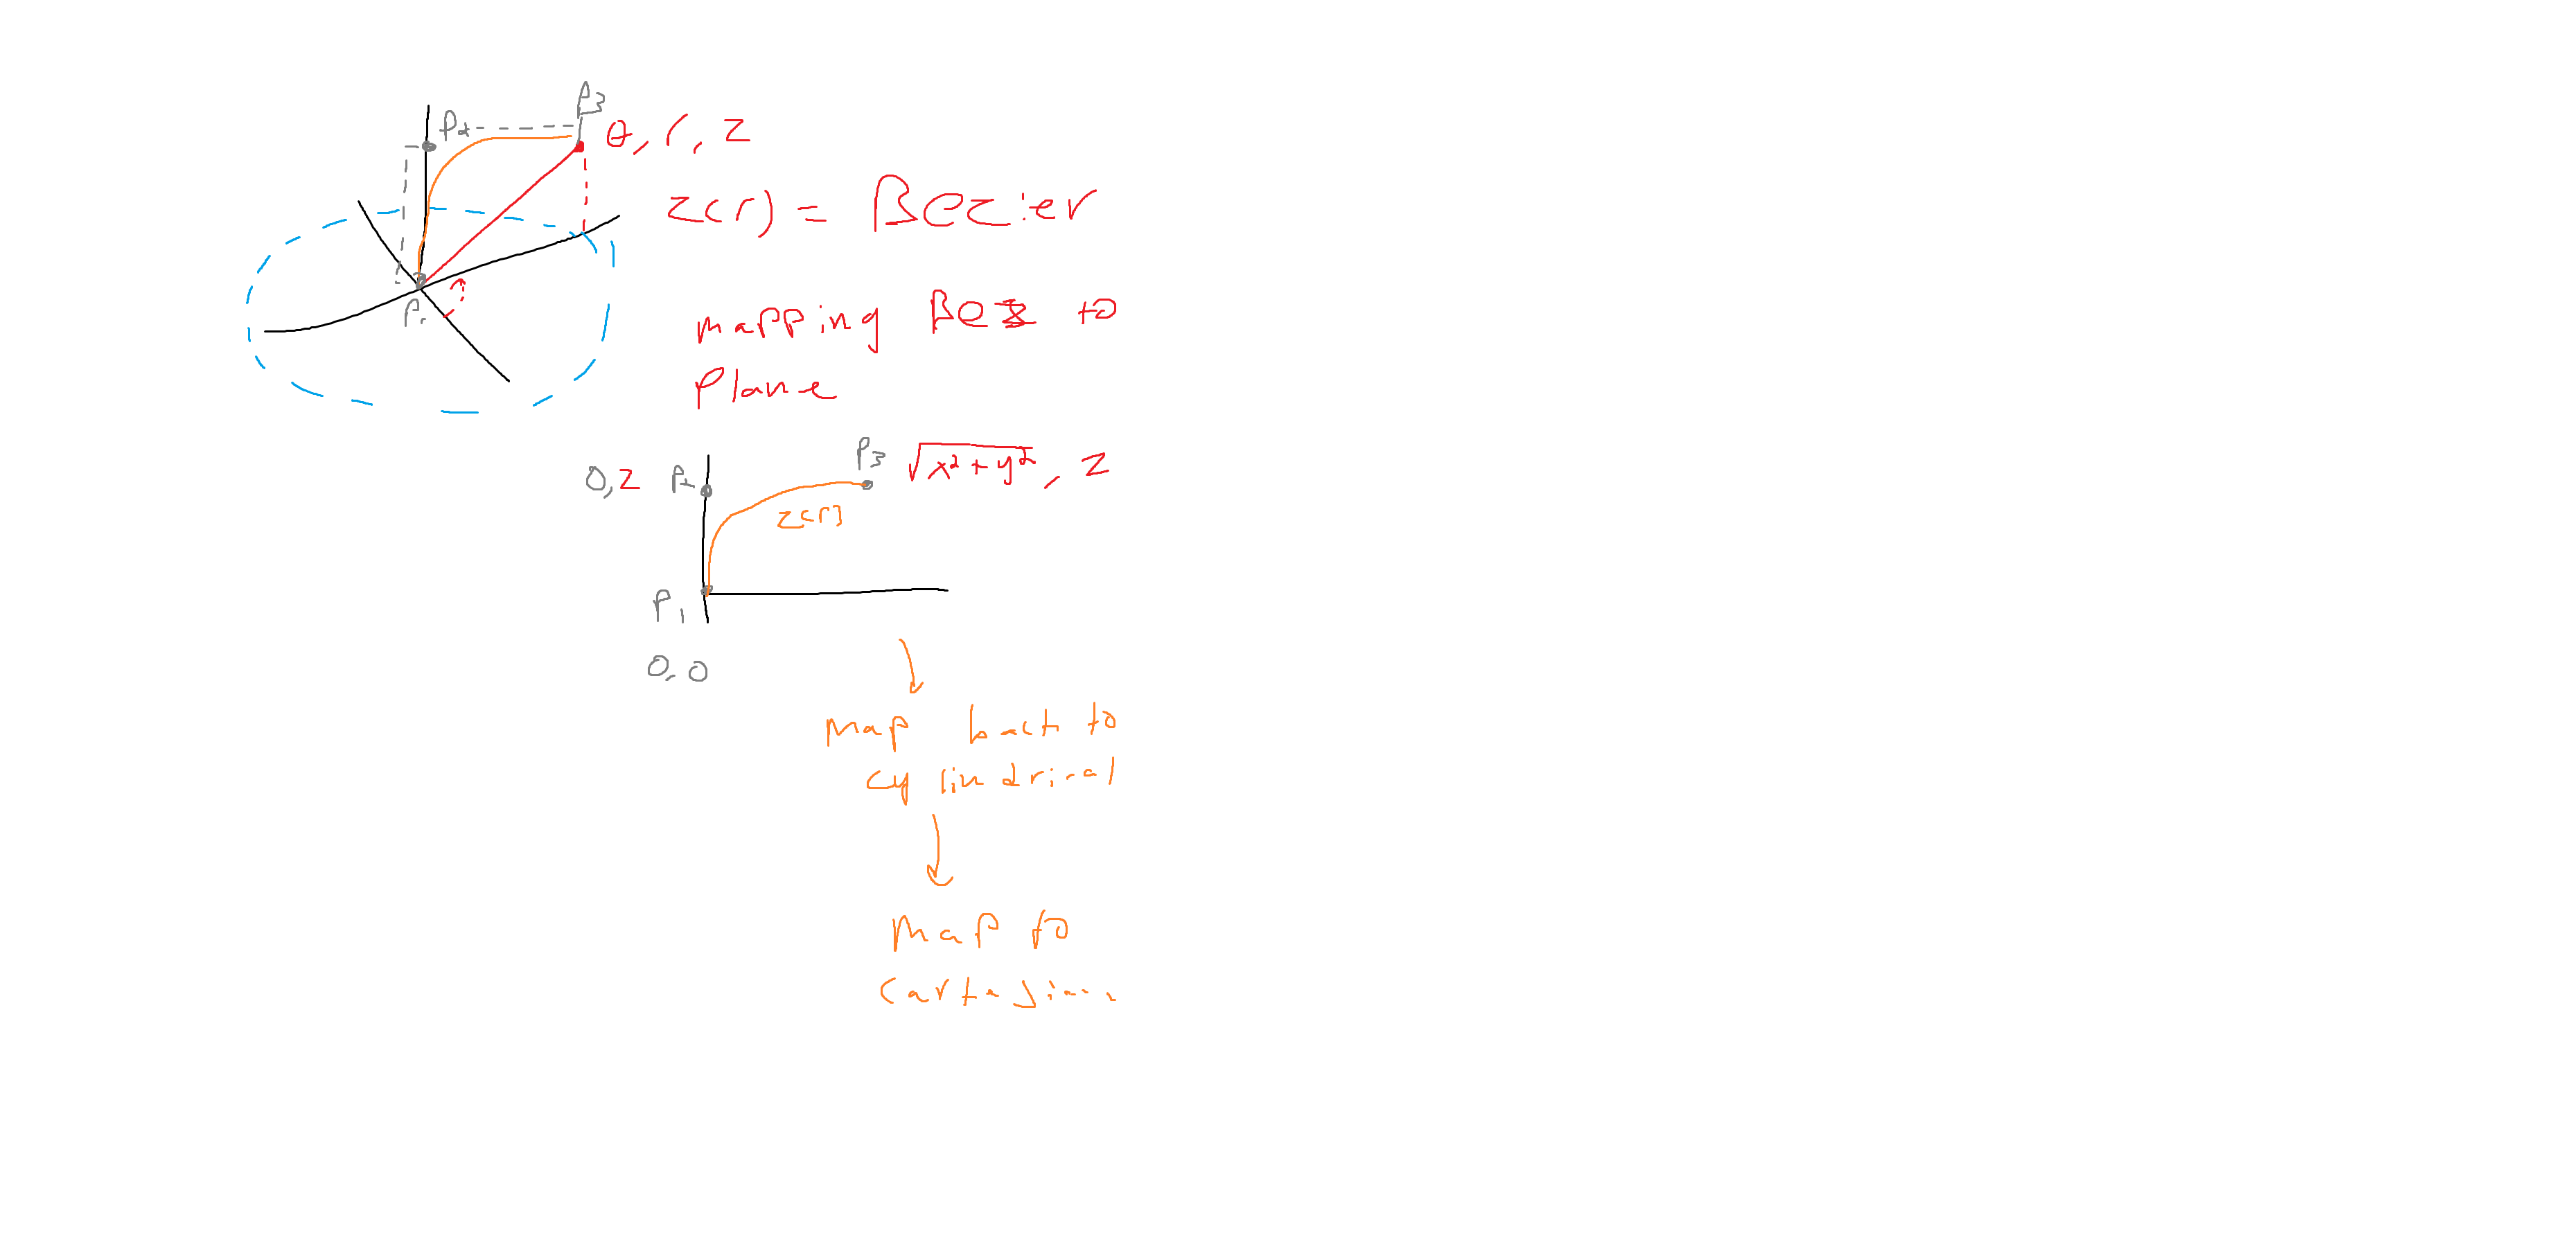 P2
P3
θ, r, z
z(r) = Bezier
P1
mapping Bez to
Plane
0,z P2
P3 √x²+y², z
z(r)
P1
0,0
Map back to
cylindrical
Map to
cartesian